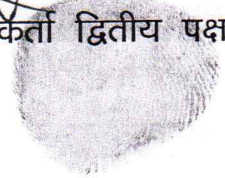 कर्ता द्वितीय पक्ष